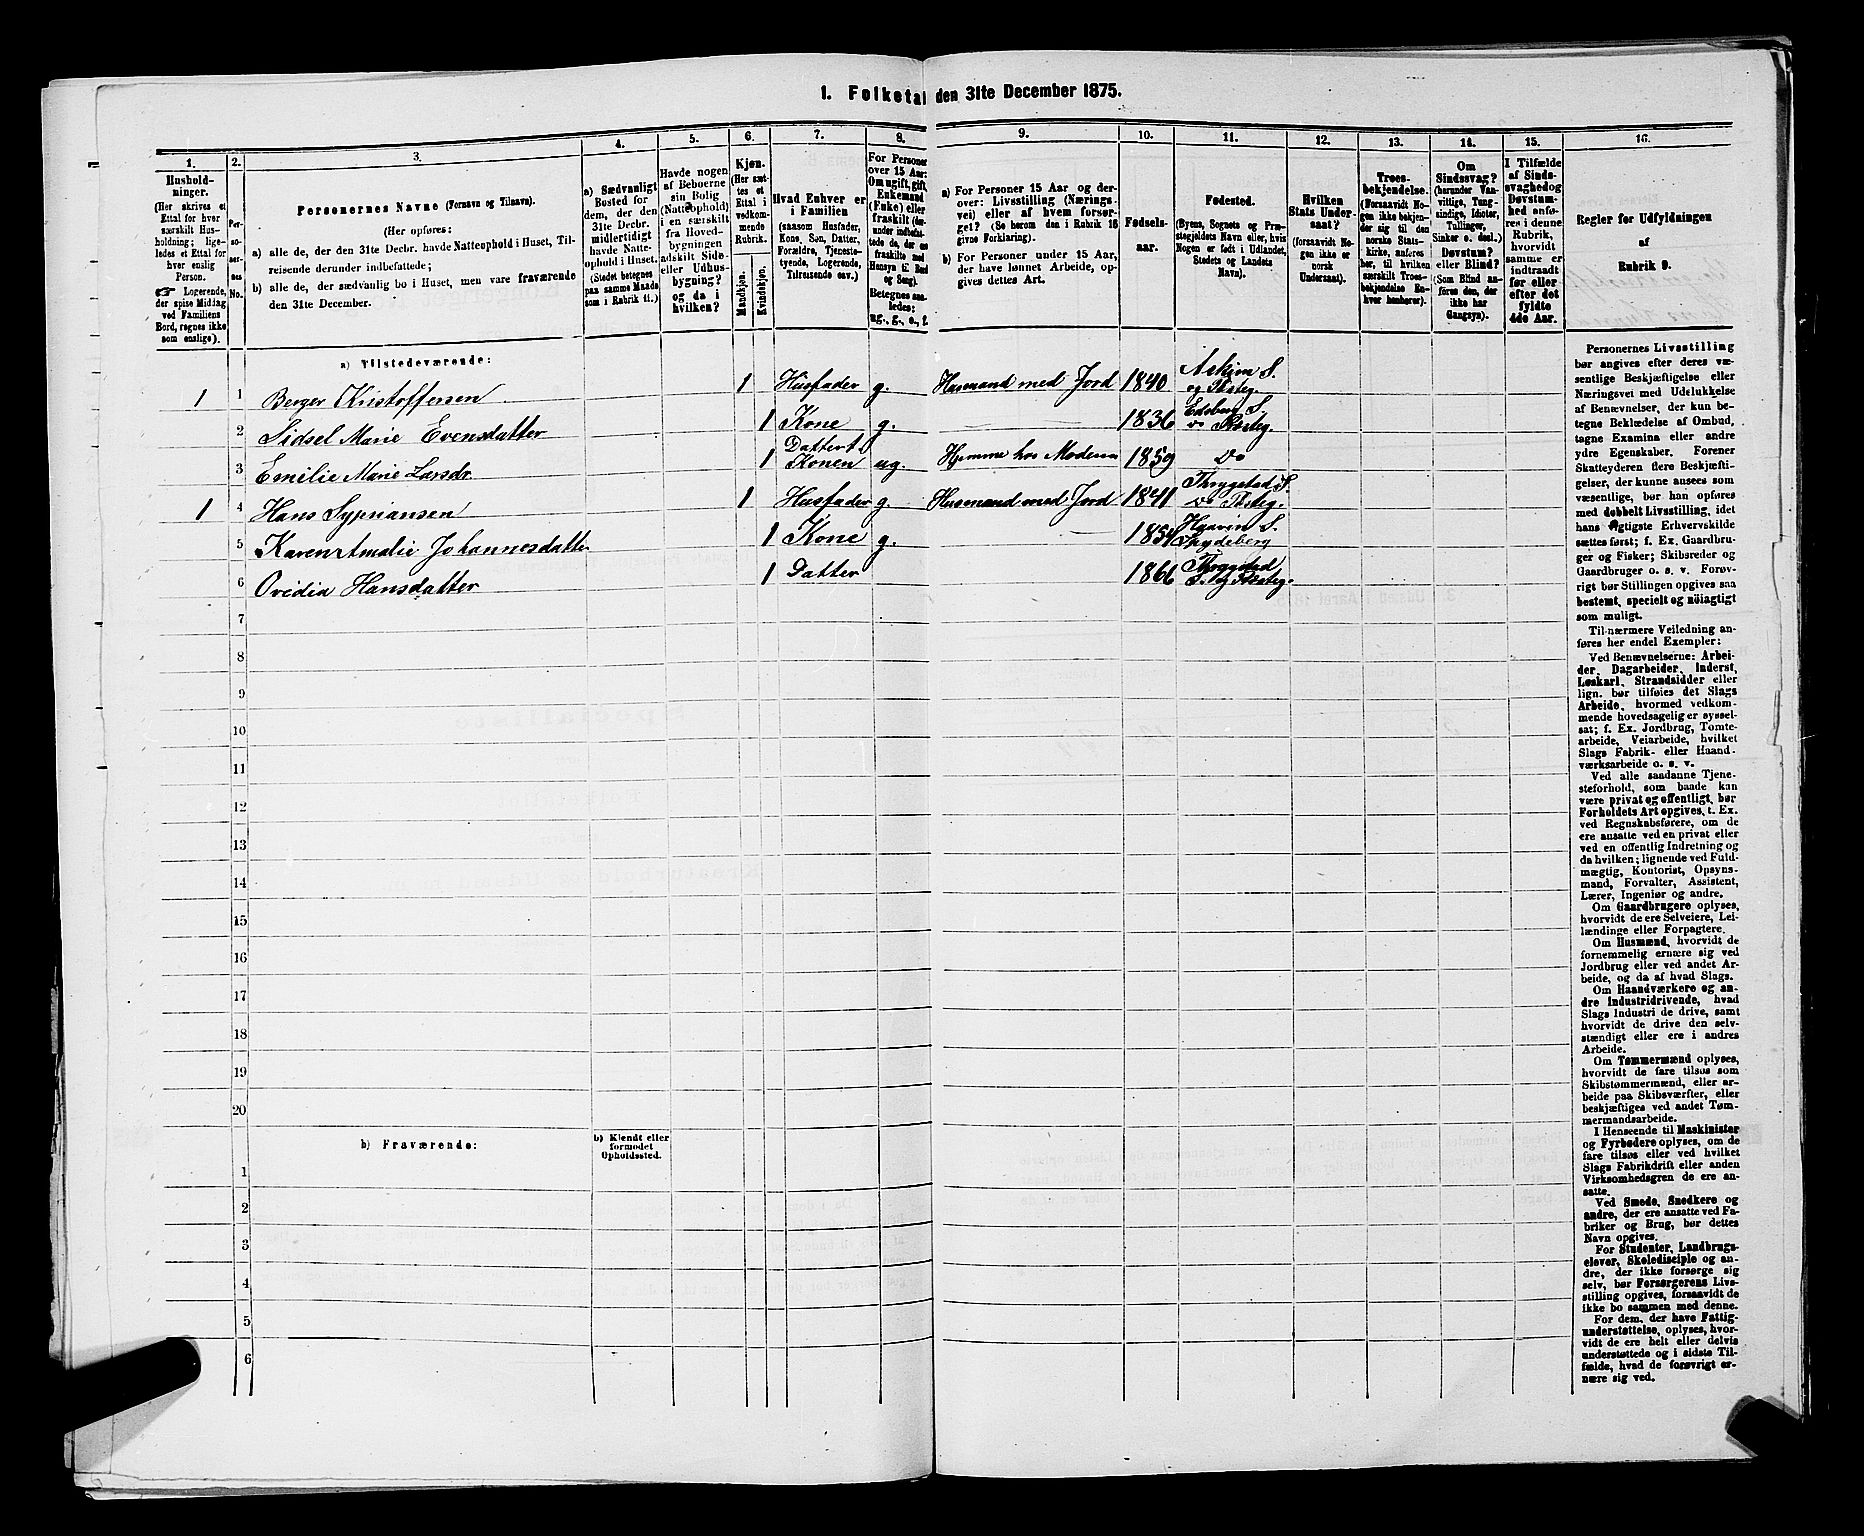 1. Folketal den 31te December 1875.
1. 2. 3. 4. 5. 6. 7. 8. 9. 10. 11. 12. 13. 14. 15. 16.
Hushold-
ninger.
(Her skrives et
Ettal for hver
særskilt Hus-
holdning; lige-
ledes et Ettal for
hver enslig
Person.
☞ Logerende,
der spise Middag
ved Familiens
Bord, regnes ikke
som enslige).
Per-
so-
ner-
nes
No.
Personernes Navne (Fornavn og Tilnavn).
(Her opføres:
a) alle de, der den 31te Decbr. havde Natteophold i Huset, Til-
reisende derunder indbefattede;
b) alle de, der sædvanlig bo i Huset, men vare fraværende
den 31te December.
a) Sædvanligt
Bosted for
dem, der den
31te Decbr.
midlertidigt
havde Natte-
ophold i Huset.
(Stedet betegnes
paa samme Maade
som i Rubrik 11.)
Havde nogen
af Beboerne
sin Bolig
(Natteophold)
i en særskilt
fra Hoved-
bygningen
adskilt Side-
eller Udhus-
bygning?
og da i
hvilken?
Kjøn.
(Her sæt-
tes et
Ettal i
vedkom-
mende
Rubrik.
Mandkjøn.
Kvindekjøn.
Hvad Enhver er
i Familien
(saasom Husfader,
Kone, Søn, Datter,
Forældre, Tjeneste-
tyende, Logerende,
Tilreisende osv.)
For Personer
over 15 Aar:
Om ugift, gift,
Enkemand
(Enke) eller
fraskilt (der-
under indbefat-
tede de, der ere
fraskilte med
Hensyn til Bord
og Seng).
Betegnes saa-
ledes:
ug., g., e., f.
a) For Personer 15 Aar og der-
over: Livsstilling (Nærings-
vei) eller af hvem forsør-
get? (Se herom den i Rubrik 16
givne Forklaring).
b) For Personer under 15 Aar,
der have lønnet Arbeide, op-
gives dettes Art.
Fødsels-
aar.
Fødested.
(Byens, Sognets og Præ-
stegjeldets Navn eller, hvis
Nogen er født i Udlandet,
Stedets og Landets
Navn).
Hvilken
Stats Under-
saat?
(forsaavidt No-
gen ikke er
norsk
Undersaat).
Troes-
bekjendelse.
(Forsaavidt No-
gen ikke bekjen-
der sig til den
norske Stats-
kirke, anføres
her, til hvilken
særskilt Troes-
bekjendelse En-
hver henhører).
Om
Sindssvag?
(herunder Van-
vittige, Tung-
sindige, Idioter,
Tullinger,
Sinker o. desl.)
Døvstum?
eller Blind?
(Som Blind an-
føres den, der
ikke har
Gangsyn).
I Tilfælde
af Sinds-
svaghed og
Døvstum-
hed anfø-
res i denne
Rubrik,
hvorvidt
samme er
indtraadt
før eller
efter det
fyldte
4de Aar.
Regler for Udfyldningen
af
Rubrik 9.
a) Tilstedeværende:
1 1 Berger Kristoffersen 1 Husfader g. Husmand med Jord 1840 Askim S. og Pstg.
2 Sidsel Marie Evensdatter 1 Kone g. 1836 Edsberg S. o Pstg.
3 Emilie Marie Larsdr 1 Datter t. Konen ug. Hjemme hos Moderen 1859 Do
1 4 Hans Sypriansen 1 Husfader g. Husmand med Jord 1841 Thrygstad S. Do Pstg.
5 Karen Amalie Johannesdatter 1 Kone g. 1854 S. Spydeberg
6 Ovidia Hansdatter 1 Datter 1866 Thrygstad S. og Pstg.
7
8
9
10
11
12
13
14
15
16
17
18
19
20
b) Fraværende:
b) Kjendt eller
formodet
Opholdssted.
1
2
3
4
5
6
Personernes Livsstilling
bør angives efter deres væ-
sentlige Beskjæftigelse eller
Næringsvei med Udelukkelse
af Benævnelser, der kun be-
tegne Beklædelse af Ombud,
tagne Examina eller andre
ydre Egenskaber. Forener
Skatteyderen flere Beskjæfti-
gelser, der kunne ansees som
væsentlige, bør han opføres
med dobbelt Livsstilling, idet
hans vigtigste Erhvervskilde
sættes først; f. Ex. Gaardbru-
ger og Fisker; Skibsreder og
Gaardbruger o. s. v. Forøv-
rigt bør Stillingen opgives saa
bestemt, specielt og nøiagtigt
som muligt.
Til nærmere Veiledning an-
føres her endel Exempler:
Ved Benævnelserne: Arbei-
der, Dagarbeider, Inderst,
Løskarl, Strandsidder eller
lign. bør tilføies det Slags
Arbeide, hvormed vedkom-
mende hovedsagelig er syssel-
sat; f. Ex. Jordbrug, Tomte-
arbeide, Veiarbeide, hvilket
Slags Fabrik- eller Haand-
værksarbeide o. s. v.
Ved alle saadanne Tjene-
steforhold, som baade kan
være privat og offentligt, bør
Forholdets Art opgives, t. Ex.
ved Regnskabsførere, om de
ere ansatte ved en privat eller
ved en offentlig Indretning og
da hvilken; lignende ved Fuld-
mægtig, Kontorist, Opsyns-
mand, Forvalter, Assistent,
Lærer, Ingeniør og andre.
Om Gaardbrugere oplyses,
hvorvidt de ere Selveiere, Lei-
lændinge eller Forpagtere.
Om Husmænd, hvorvidt de
fornemmelig ernære sig ved
Jordbrug eller ved andet Ar-
beide, og da af hvad Slags.
Om Haandværkere og an-
dre Industridrivende, hvad
Slags Industri de drive, samt
hvorvidt de drive den selv-
stændigt eller ere i andres
Arbeide.
Om Tømmermænd oplyses,
hvorvidt de fare tilsøs som
Skibstømmermænd, eller ar-
beide paa Skibsværfter, eller
beskjæftiges ved andet Tøm-
mermandsarbeide.
I Henseende til Maskinister
og Fyrbødere oplyses, om de
fare tilsøs eller ved hvilket
Slags Fabrikdrift eller anden
Virksomhedsgren de ere an-
satte.
Ved Smede, Snedkere og
andre, der ere ansatte ved Fa-
briker og Brug, bør dettes
Navn opgives.
For Studenter, Landbrugs-
elever, Skoledisciple og an-
dre, der ikke forsørge sig
selv, bør Forsørgerens Livs-
stilling opgives, forsaavidt de
ikke bo sammen med denne.
For dem, der have Fattig-
understøttelse, oplyses, hvor-
vidt de ere helt eller delvis
understøttede og i sidste Til-
fælde, hvad de forøvrigt er-
nære sig ved.